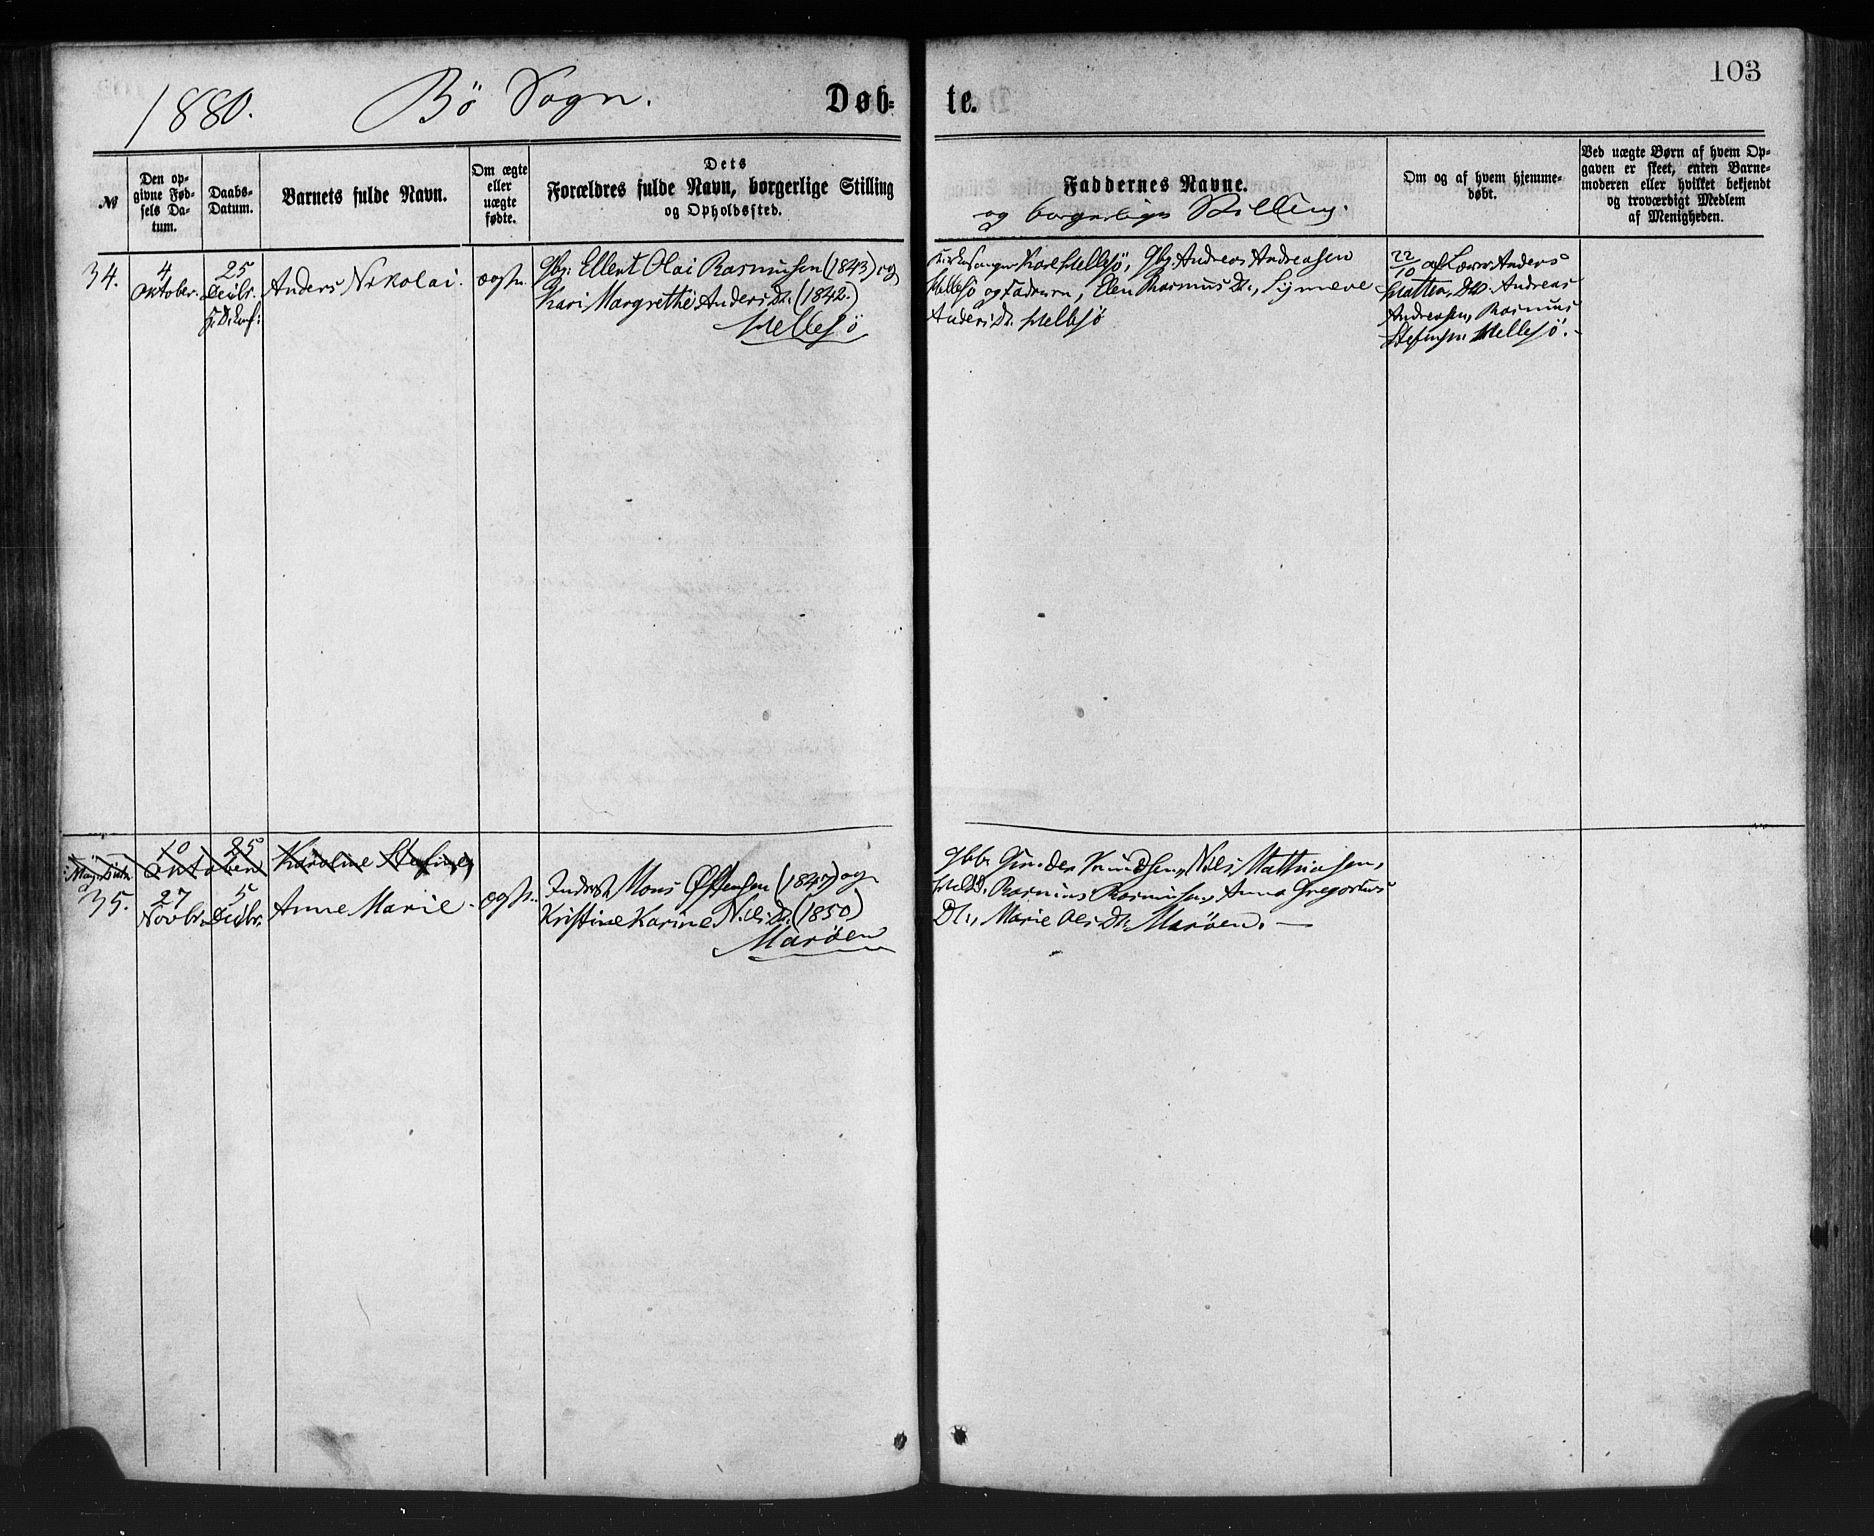 103
1880. Bö Sogn. Døb- te.
№
Den op-
givne Fød-
sels Da-
tum.
Daabs-
Datum.
Barnets fulde Navn.
Om ægte
eller
uægte
fødte.
Dets
Forældres fulde Navn, borgerlige Stilling
og Opholdssted.
Faddernes Navne.
og borgerlige Stilling.
Om og af hvem hjemme-
døbt.
Ved uægte Børn af hvem Op-
gaven er skeet, enten Barne-
moderen eller hvilket bekjendt
og troværdigt Medlem
af Menigheden.
34.
4
Oktober.
25
Decbr.
Anders Nikolai.
ægte.
Gbr: Ellert Olai Rasmusen (1843) og
Kari Margrethe Anders Dt. (1842.)
Hellesö
Kirkesanger Karl Hellesö, Gbr. Andreas Andreasen
Hellesö og Faderen, Elen Rasmus Dt., Synneve
Anders Dt. Hellesö
22/10 af Lærer Anders
Andreas
Andreasen, Rasmus
Hellesö.
10
Oktober
25
Karoline Stefine
35.
27
Novbr.
5
Decbr.
Anne Marie.
ægte.
Inderst Mons Östensen (1847) og
Kristine Karine Nils Dt. (1850)
Maröen
Gbr. Gunder Knudsen, Nils Mathiasen,
Rasmus Rasmusen, Anna Gregorius
Dt., Marie Ols Dt. Maröen.